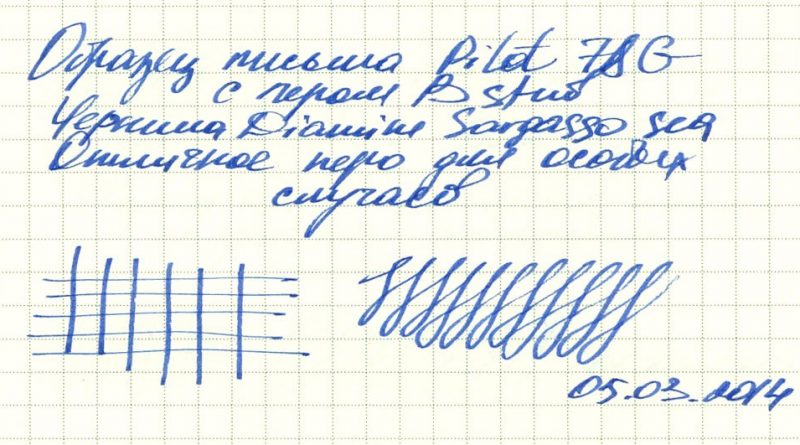 Образец письма Pilot 78G
с пером B stub
Чернила Diamine Sargasso sea
Отличное перо для особых
случаев
05.03.2014